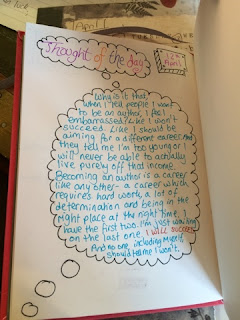 April
Thought of the day
Why is it that
when I tell people I want
to be an author, I feel
embarrassed. Like I won't
succeed. Like I should be
aiming for a different career. And
they tell me I'm too young or I
will never be able to actually
live purely off that income.
Becoming an author is a career
like any other - a career which
require's hard work, a lot of
determination and being in the
right place at the right time. I
have the first two. I'm just waiting
on the last one. I will succeed
And no one, including myself,
should tell me I won't.